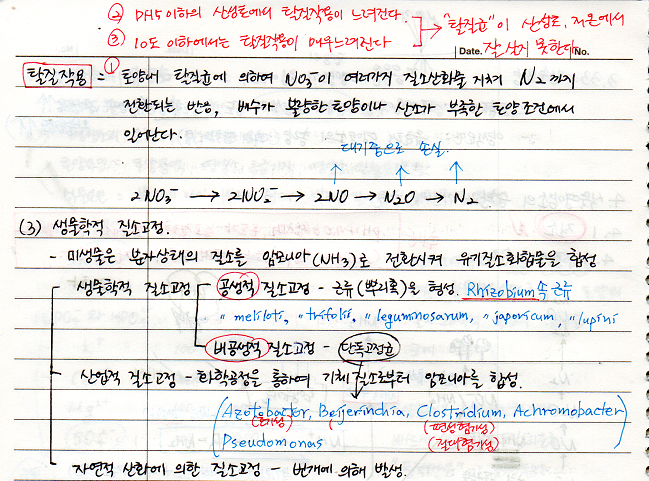 ② PH5 이하의 산성토에서 탈질작용이 느려진다.
③ 10도 이하에서는 탈질작용이 매우느려진다
"탈질균"이 산성토, 저온에서
잘 살지 못한다
Date. No.
탈질작용 = ① 토양내 탈질균에 의하여 NO₃⁻이 여러가지 질소산화물을 거쳐 N₂ 까지
전환되는 반응, 배수가 불량한 토양이나 산소가 부족한 토양조건에서
일어난다.
대기중으로 손실.
2NO₃⁻ → 2NO₂⁻ → 2NO → N₂O → N₂
(3) 생물학적 질소고정.
- 미생물은 분자상태의 질소를 암모니아(NH₃)로 전환시켜 유기질소화합물을 합성
생물학적 질소고정 공생적 질소고정 - 근류(뿌리혹)을 형성. Rhizobium속 근류
〃 meliloti, 〃 trifolii, 〃 leguminosarum, 〃 japoricum, 〃 lupini
비공생적 질소고정 - 단독고정균
산업적 질소고정 - 화학공정을 통하여 기체질소로부터 암모니아를 합성.
(Azotobacter, Beijerinchia, Clostridium, Achromobacter
(호기성) (편성혐기성)
Pseudomonas (절대혐기성) )
자연적 산화에 의한 질소고정 - 번개에 의해 발생.